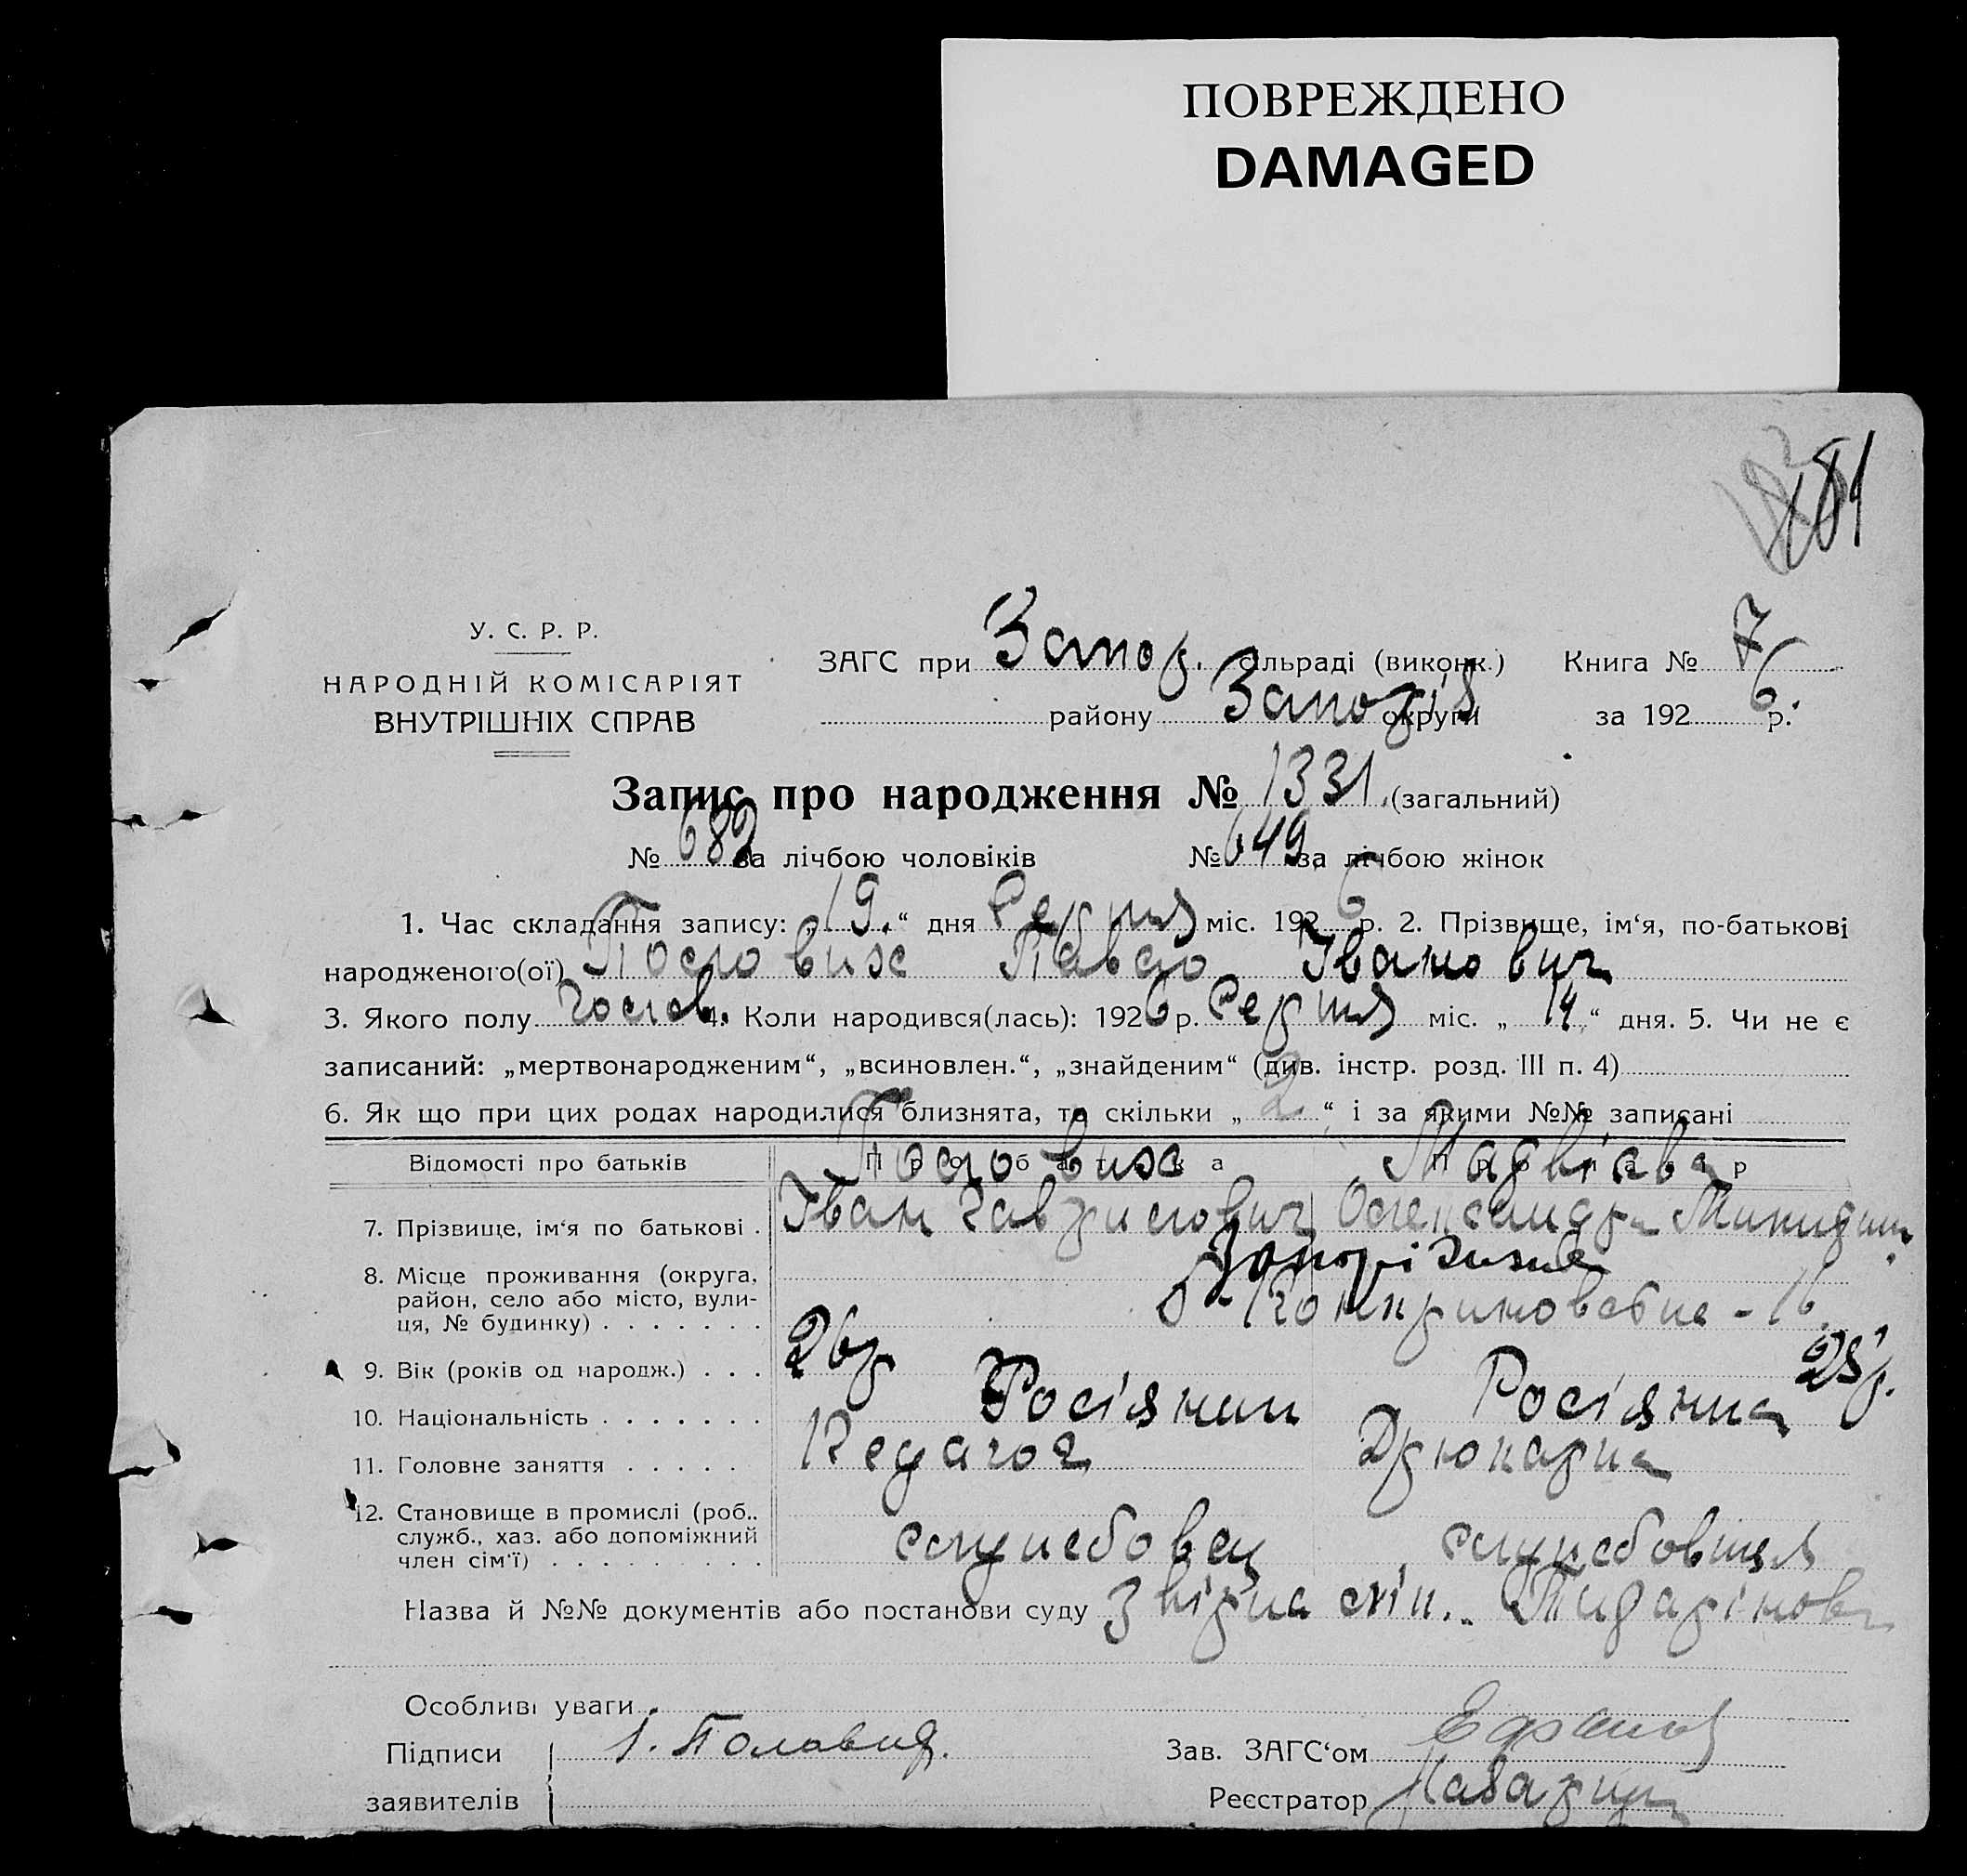 ПОВРЕЖДЕНО
DAMAGED
181
У. С. Р. Р.
НАРОДНІЙ КОМІСАРІЯТ
ВНУТРІШНІХ СПРАВ
ЗАГС при Запор. сільраді (виконк.) Книга № 7
району Запоріз округи за 192 6 р.
Запис про народження № 1331 (загальний)
№ 682 за лічбою чоловіків № 649 за лічбою жінок
1. Час складання запису: „ 19 “ дня Серпня міс. 192 6 р. 2. Прізвище, ім‘я, по-батькові
народженого(ої) Павло Іванович
3. Якого полу чолов. 4. Коли народився(лась): 192 6 р. Серпня міс. „ 14 “ дня. 5. Чи не є
записаний: „мертвонародженим“, „всиновлен.“, „знайденим“ (див. інстр. розд. III п. 4)
6. Як що при цих родах народилися близнята, то скільки „ 2 “ і за якими №№ записані
Відомості про батьків Про батька Про матір
7. Прізвище, ім‘я по батькові . Іван Гаврилович Олександра
8. Місце проживання (округа, Запоріжжя
район, село або місто, вули-
ця, № будинку) . . . . . . . - 16
9. Вік (років од народж.) . . . 26 р 25 р.
10. Національність . . . . . . . Росіянин Росіянка
11. Головне заняття . . . . . Педагог Друкарка
12. Становище в промислі (роб..
служб., хаз. або допоміжний службовец службовця
член сім‘ї) . . . . . . . . .
Назва й №№ документів або постанови суду
Особливі уваги
Підписи Зав. ЗАГС‘ом
заявителів Реєстратор